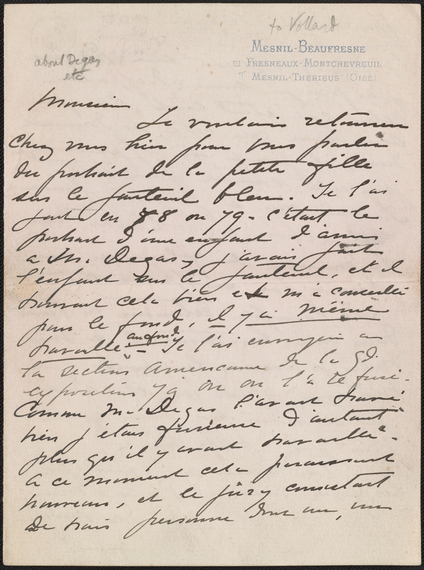 to Vollard
about Degas
etc
MESNIL-BEAUFRESNE
FRESNEAUX-MONTCHEVREUIL
MESNIL-THÉRIBUS (OISE)
Monsieur
Je voulais retourner
chez vous hier pour vous parler
du portrait de la petite fille
sur le fauteuil bleu. Je l'ai
fait en 78 ou 79 - c'était le
portrait d'une enfant d'amis
a M. Degas, j'avais fait
l'enfant sur le fauteuil, et il
trouvait cela bien et m'a conseillé
pour le fond, il y a même
travaillé - au fond
Je l'ai envoyé a
la section Americaine de la gd.
exposition 79 ou on l'a refusé.
Comme M. Degas l'avait trouvé
bien j'étais furieuse d'autant
plus qu'il y avait travaillé -
a ce moment cela paraissait
nouveau, et le jury consistait
de trois personnes dont un, un